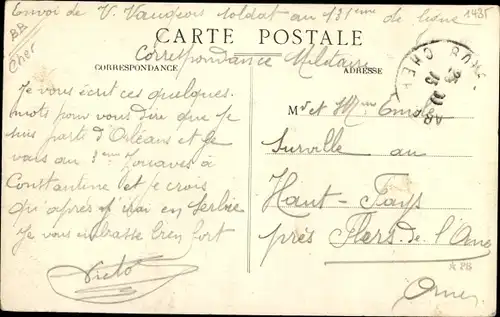 Envoi de V. Vaugeois soldat au 131ème de ligne
1435
BB
Cher
CARTE POSTALE
Correspondance Militaire
CORRESPONDANCE
ADRESSE
CHER
Je vous écrit ces quelques
mots pour vous dire que je
suis parti d'Orléans et je
vais au 3ème Zouaves à
Constantine et je crois
qu'après j'irai en Serbie
Je vous embrasse bien fort
Mr et Mme Emile
Surville au
Haut-Fays
près Flers-de-l'Orne
Orne